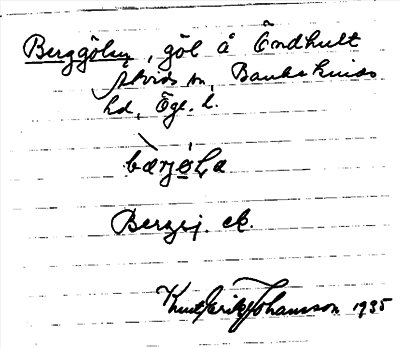 Berggölen, göl å Öndhult
Skeds sn, Bankekinds
hd, Ögl. l.
bærjøLa
Bergsj. ek.
Knut Erik Johansson 1935